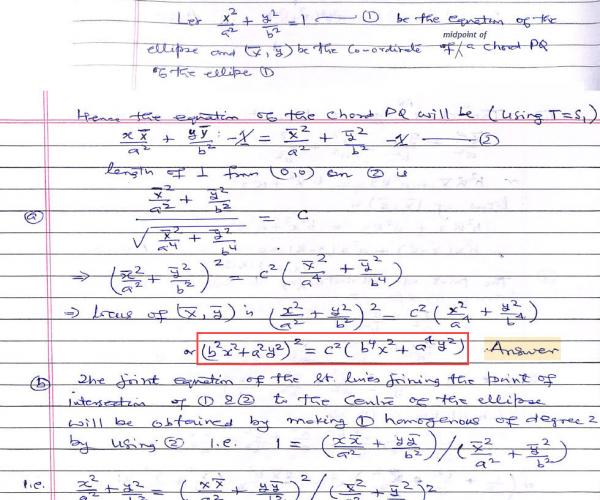 Let x²/a² + y²/b² = 1 —— ① be the equation of the
midpoint of
ellipse and (x̄, ȳ) be the co-ordinate of / a chord PQ
of the ellipse ①
Hence the equation of the chord PQ will be (using T=S₁)
x x̄/a² + y ȳ/b² - 1 = x̄²/a² + ȳ²/b² - 1 —— ②
length of ⊥ from (0,0) on ② is
(a) (x̄²/a² + ȳ²/b²) / √(x̄²/a⁴ + ȳ²/b⁴) = c
⇒ (x̄²/a² + ȳ²/b²)² = c² (x̄²/a⁴ + ȳ²/b⁴)
⇒ locus of (x̄, ȳ) is (x²/a² + y²/b²)² = c² (x²/a⁴ + y²/b⁴)
or (b²x²+a²y²)² = c² (b⁴x² + a⁴y²) Answer
(b) The joint equation of the st. lines joining the point of
intersection of ① & ② to the centre of the ellipse
will be obtained by making ① homogenous of degree 2
by using ② i.e. 1 = (x x̄/a² + y ȳ/b²) / (x̄²/a² + ȳ²/b²)
i.e. x²/a² + y²/b² = (x x̄/a² + y ȳ/b²)² / (x̄²/a² + ȳ²/b²)²